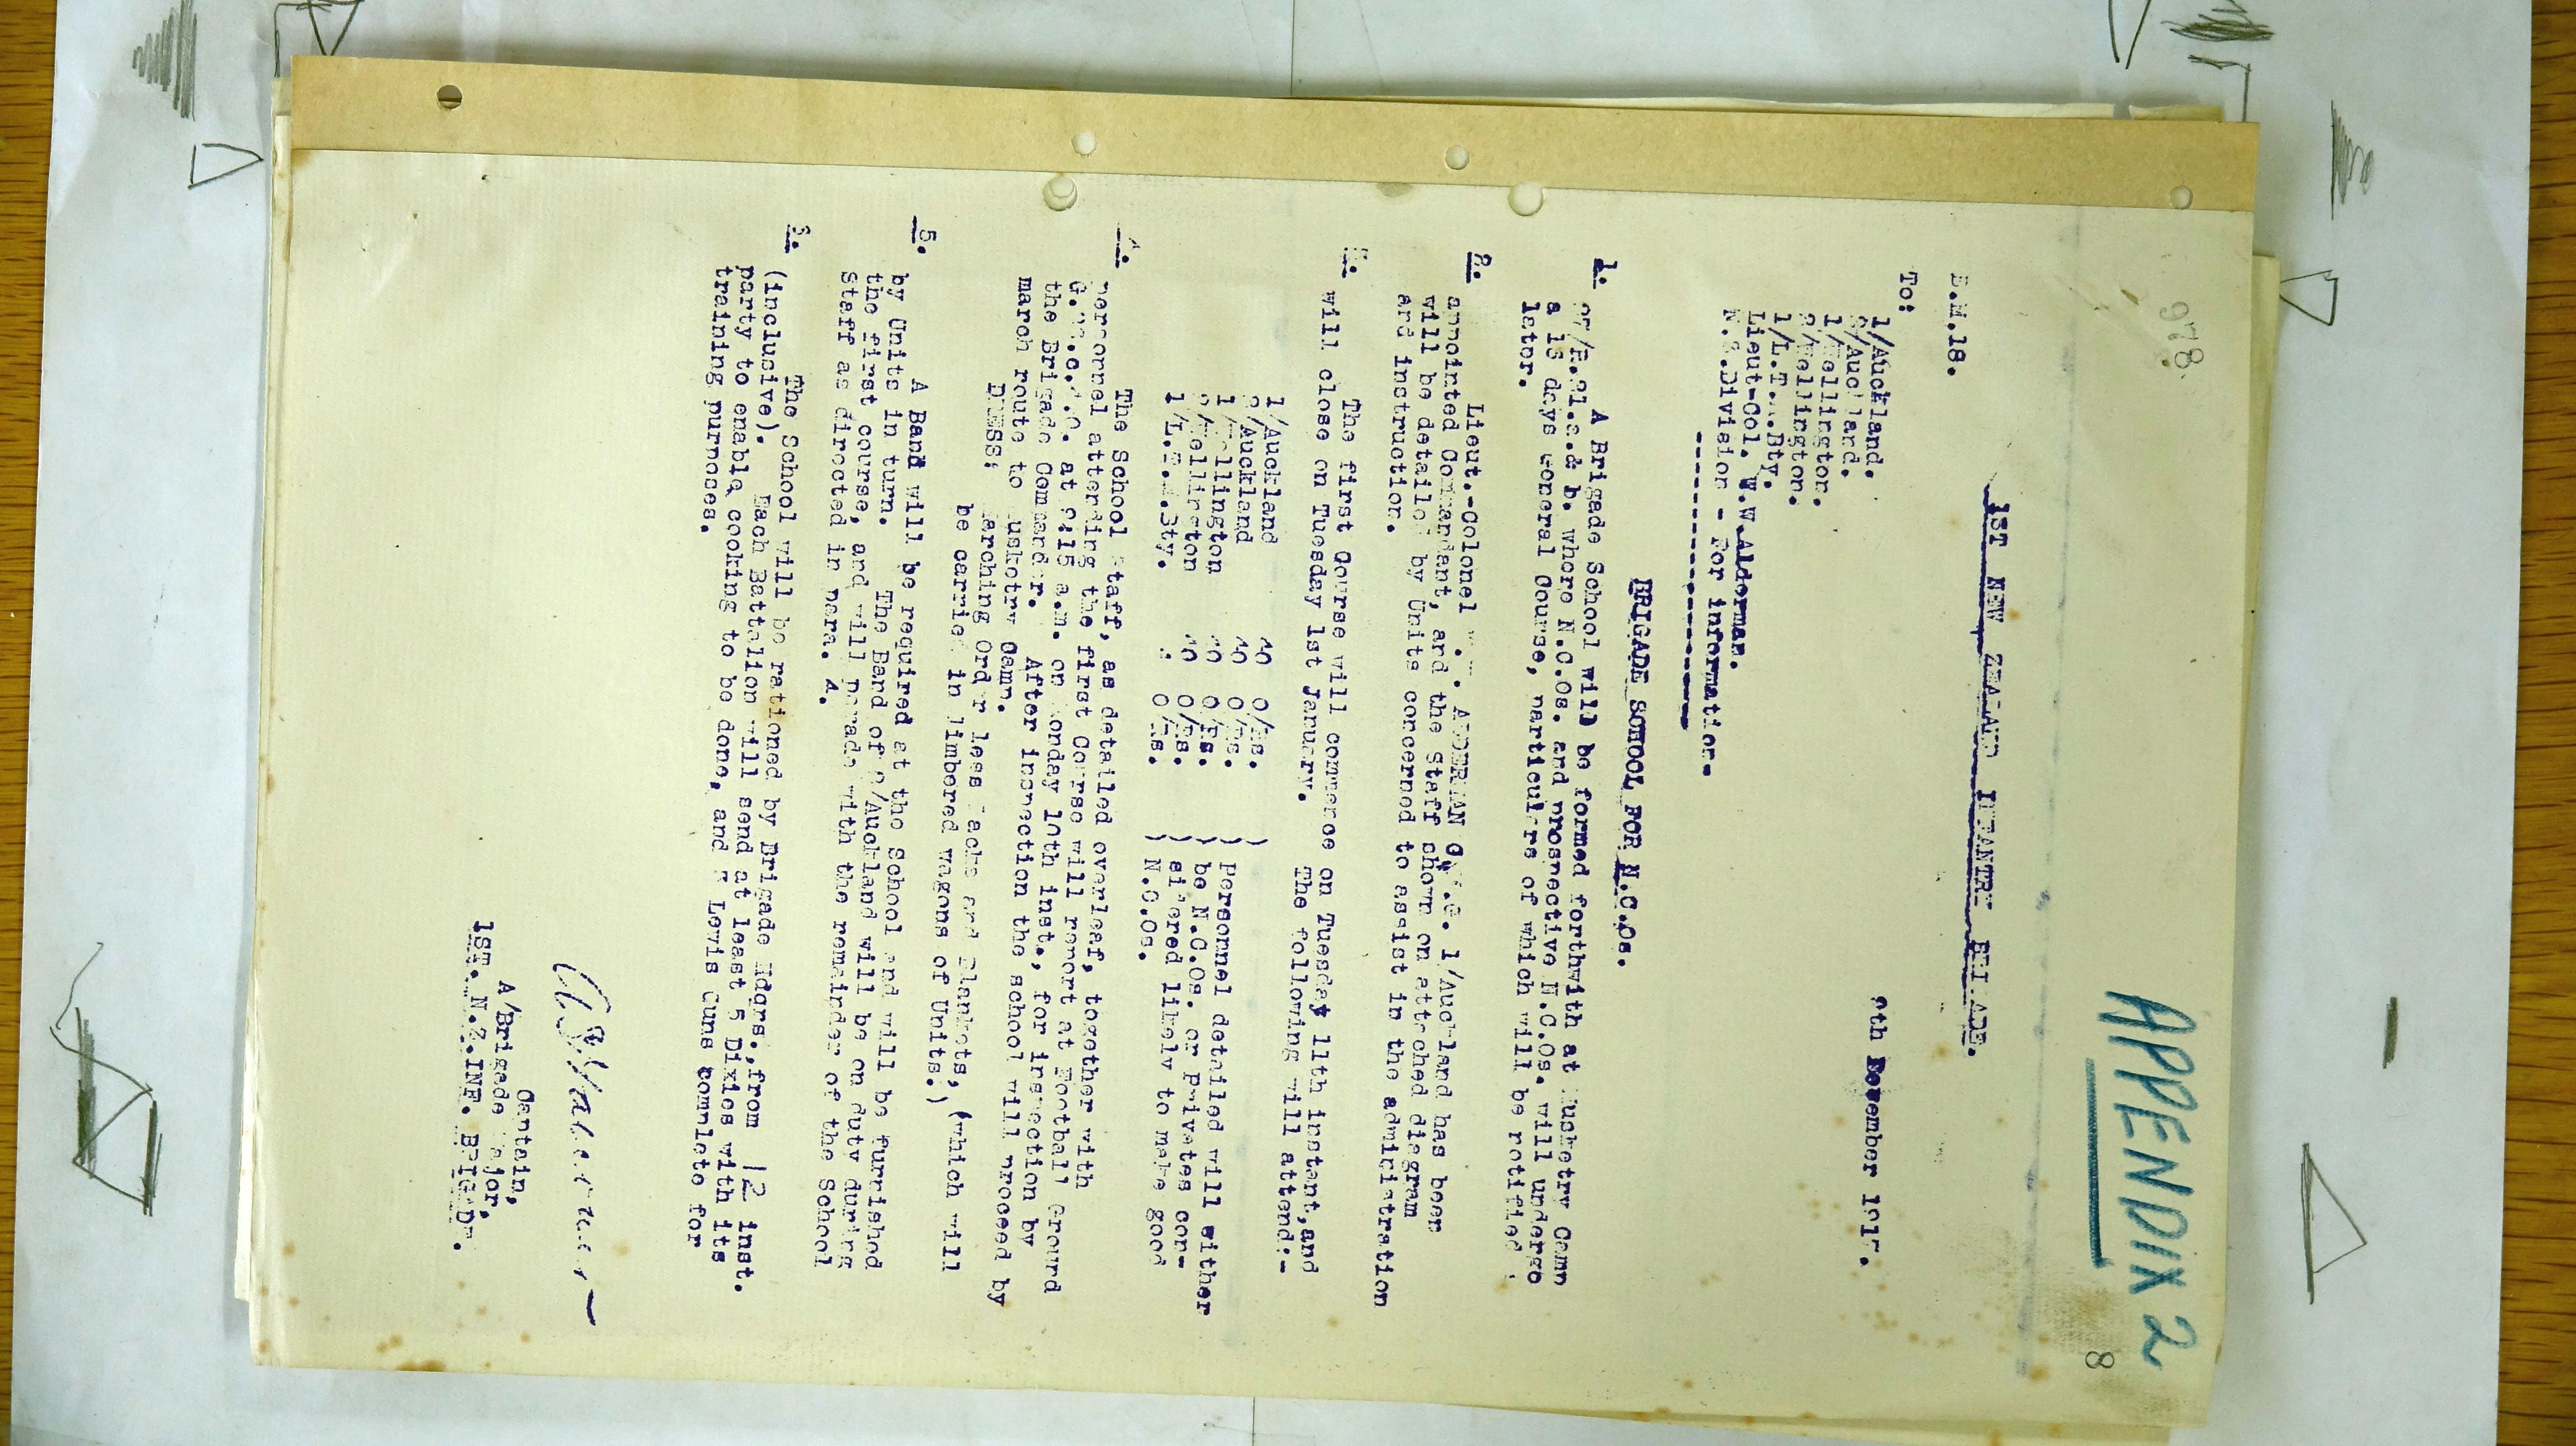 978.
APPENDIX 2
8
1ST NEW ZEALAND INFANTRY BRIGADE.
B.M.18.
9th December 1917.
To:
1/Auckland.
2/Auckland.
1/Wellington.
2/Wellington.
1/L.T.M.Bty.
Lieut-Col. W.W.Alderman.
N.Z.Division - For information.
BRIGADE SCHOOL FOR N.C.Os.
1. A Brigade School will be formed forthwith at Musketry Camp
27/H.21.c.& b. where N.C.Os. and prospective N.C.Os. will undergo
a 15 days general Course, particulars of which will be notified
later.
2. Lieut.-Colonel ALDERMAN 1/Auckland has been
appointed Commandant, and the Staff shown on attached diagram
will be detailed by Units concerned to assist in the administration
and instruction.
3. The first Course will commence on Tuesday 11th instant, and
will close on Tuesday 1st January. The following will attend:-
1/Auckland 20 O/Rs. )
2/Auckland 20 O/Rs. ) Personnel detailed will either
1/Wellington 20 O/Rs. ) be N.C.Os. or Privates con-
2/Wellington 20 O/Rs. ) sidered likely to make good
1/L.T.M.Bty. O/Rs. ) N.C.Os.
4. The School Staff, as detailed overleaf, together with
personnel attending the first Course will report at Football Ground
at 9:15 a.m. on Monday 10th inst., for inspection by
the Brigade Commander. After inspection the school will proceed by
march route to Musketry Camp.
DRESS: Marching Order less Packs and Blankets, (which will
be carried in limbered wagons of Units.)
5. A Band will be required at the School and will be furnished
by Units in turn. The Band of 2/Auckland will be on duty during
the first course, and will parade with the remainder of the School
Staff as directed in para. 4.
6. The School will be rationed by Brigade Hdqrs., from 12 inst.
(inclusive). Each Battalion will send at least 5 Dixies with its
party to enable cooking to be done, and Lewis Guns complete for
training purposes.
Captain,
A/Brigade Major,
1ST. N.Z.INF. BRIGADE.